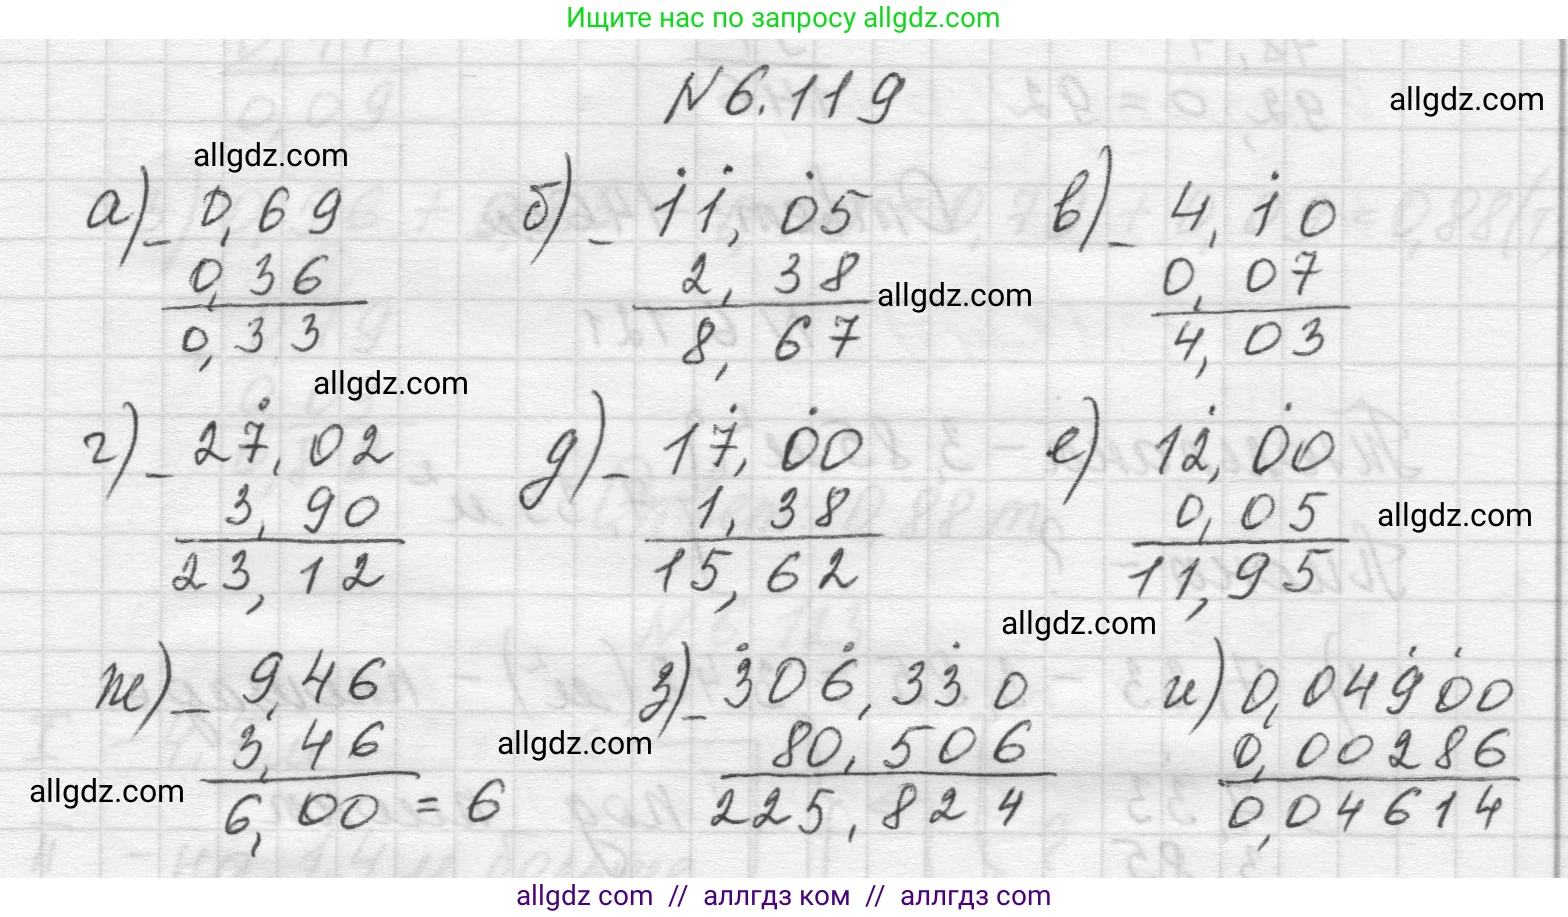 Ищите нас по запросу allgdz.com
№ 6.119
allgdz.com
allgdz.com
а) - 0,69 б) - 11,05 в) - 4,10
0,36 2,38 0,07
allgdz.com
0,33 8,67 4,03
allgdz.com
г) - 27,02 д) - 17,00 е) 12,00
3,90 1,38 0,05
allgdz.com
23,12 15,62 11,95
allgdz.com
ж) - 9,46 з) - 306,330 и) 0,04900
3,46 80,506 0,00286
allgdz.com
allgdz.com
6,00 = 6 225,824 0,04614
allgdz com // аллгдз ком // аллгдз com